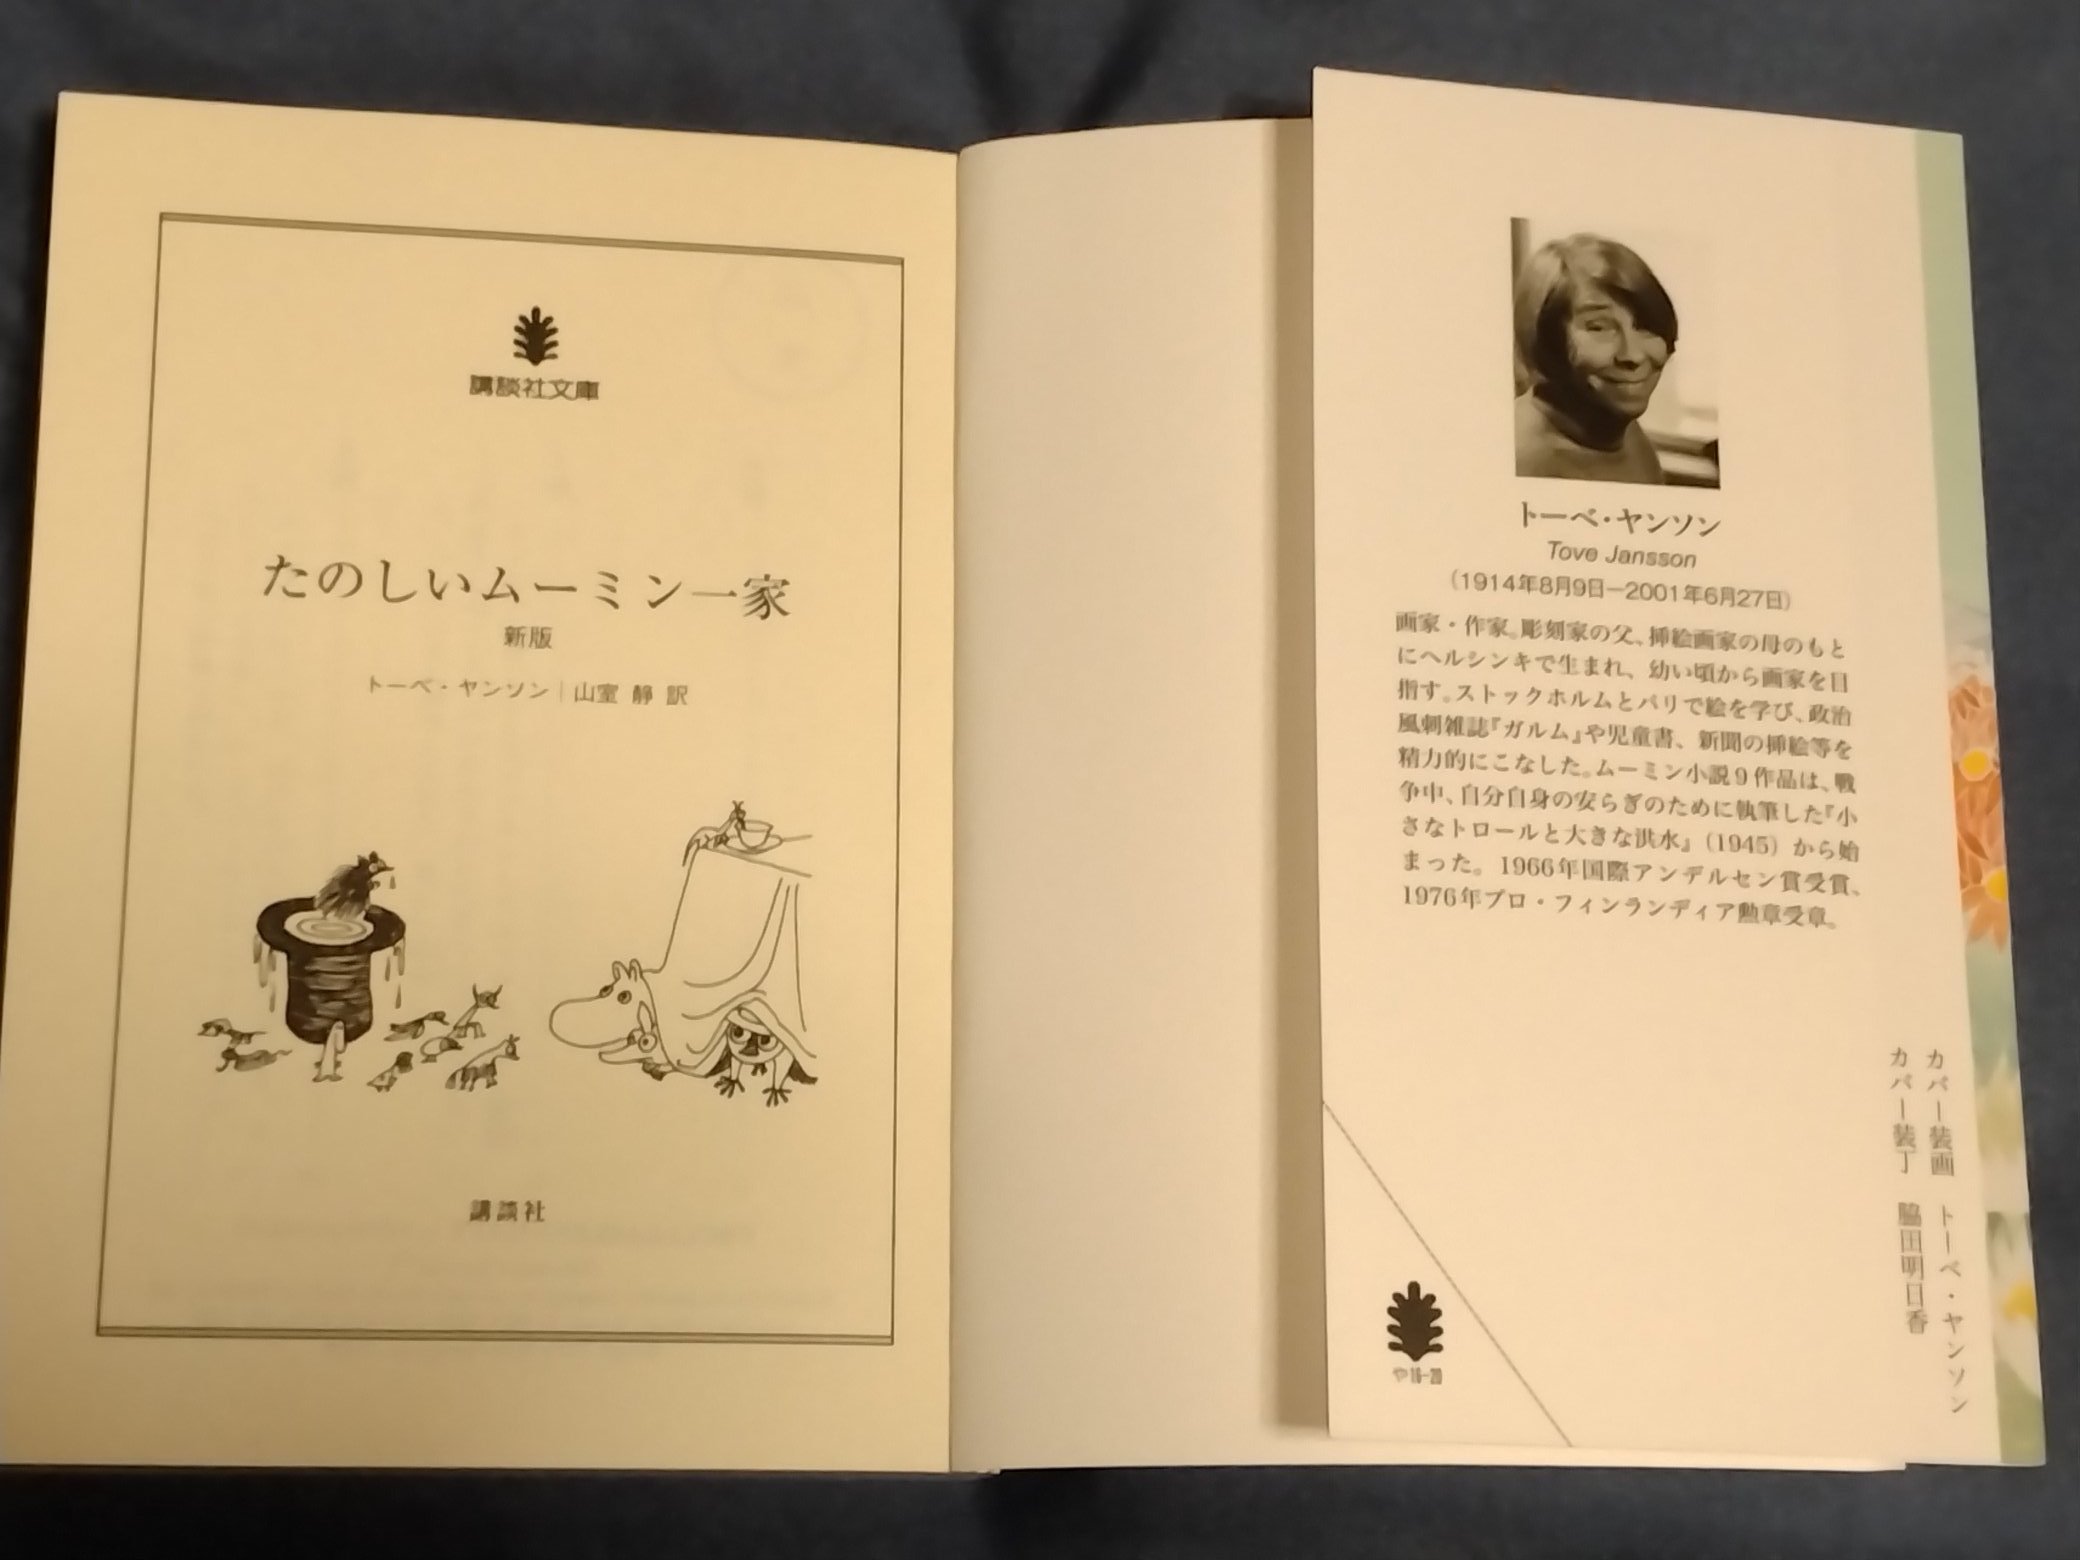 講談社文庫
たのしいムーミン一家
新版
トーベ・ヤンソン｜山室 静 訳
講談社
トーベ・ヤンソン
Tove Jansson
(1914年8月9日−2001年6月27日)
画家・作家。彫刻家の父、挿絵画家の母のもと
にヘルシンキで生まれ、幼い頃から画家を目
指す。ストックホルムとパリで絵を学び、政治
風刺雑誌『ガルム』や児童書、新聞の挿絵等を
精力的にこなした。ムーミン小説9作品は、戦
争中、自分自身の安らぎのために執筆した『小
さなトロールと大きな洪水』(1945) から始
まった。1966年国際アンデルセン賞受賞、
1976年プロ・フィンランディア勲章受章。
カバー装画 トーベ・ヤンソン
カバー装丁 脇田明日香
や16-20